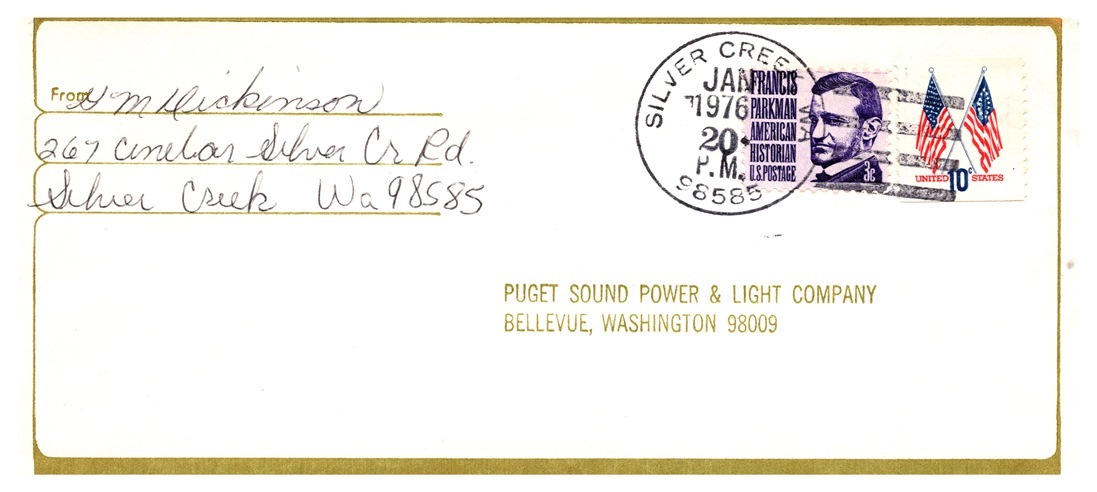 From
G M Dickinson
267 Cinebar Silver Cr Rd.
Silver Creek Wa 98585
SILVER CREEK, WA
JAN
1976
20
P.M.
98585
FRANCIS
PARKMAN
AMERICAN
HISTORIAN
U.S. POSTAGE
3c
UNITED 10c STATES
PUGET SOUND POWER & LIGHT COMPANY
BELLEVUE, WASHINGTON 98009